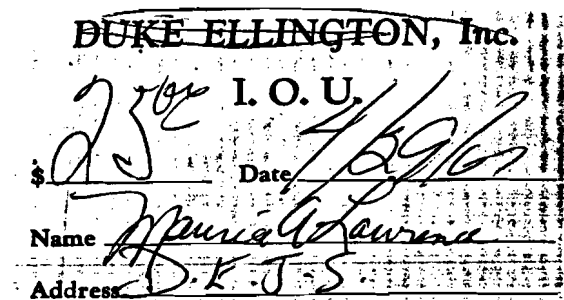 DUKE ELLINGTON, Inc.
I. O. U.
$ 25 00 Date 4/29/61
Name Maurice A Lawrence
Address D. E. J. S.